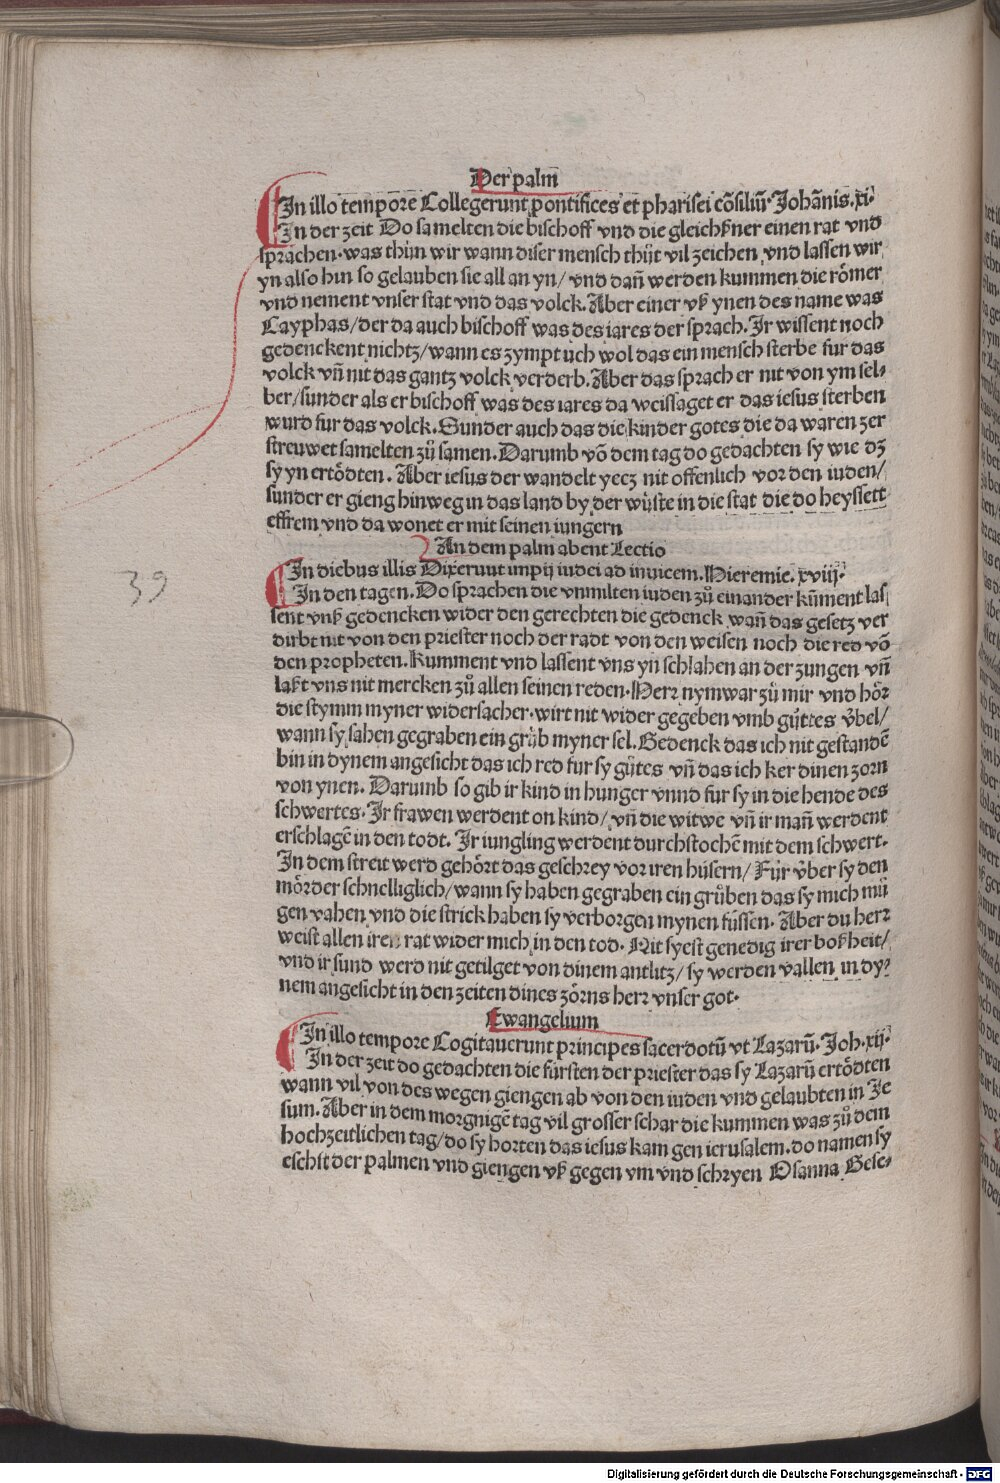 Der palm
In illo tempore Collegerunt pontifices et pharisei cõsiliũ. Johãnis. xi.
In der zeit Do samelten die bischoff vnd die gleichßner einen rat vnd
sprachen. was thůn wir wann diser mensch thůt vil zeichen vnd lassen wir
yn also hin so gelauben sie all an yn / vnd dañ werden kummen die rômer
vnd nement vnser stat vnd das volck. Aber einer vß ynen des name was
Cayphas / der da auch bischoff was des iares der sprach. Ir wissent noch
gedenckent nichtz / wann es zympt üch wol das ein mensch sterbe fur das
volck vñ nit das gantz volck verderb. Aber das sprach er nit von ym sel-
ber / sunder als er bischoff was des iares da weissaget er das iesus sterben
wurd fur das volck. Sunder auch das die kinder gotes die da waren zer
streuwet samelten zů samen. Darumb võ dem tag do gedachten sy wie dz
sy yn ertôdten. Aber iesus der wandelt yecz nit offenlich vor den iuden /
sunder er gieng hinweg in das land by der wůste in die stat die do heyssett
effrem vnd da wonet er mit seinen iungern
An dem palm abent Lectio
In diebus illis Dixerunt impij iudei ad inuicem. Hieremie. xviij.
In den tagen. Do sprachen die vnmilten iuden zů einander kũment las
sent vnß gedencken wider den gerechten die gedenck wañ das gesetz ver
dirbt nit von den priester noch der radt von den weisen noch die red võ
den propheten. Kumment vnd lassent vns yn schlahen an der zungen vñ
laßt vns nit mercken zů allen seinen reden. Herr nymwar zů mir vnd hôr
die stymm myner widersacher. wirt nit wider gegeben vmb gůttes v̊bel /
wann sy sahen gegraben ein grůb myner sel. Gedenck das ich nit gestandẽ
bin in dynem angesicht das ich red fur sy gůtes vñ das ich ker dinen zorn
von ynen. Darumb so gib ir kind in hunger vnnd fur sy in die hende des
schwertes. Ir frawen werdent on kind / vñ die witwe vñ ir mañ werdent
erschlagẽ in den todt. Ir iungling werdent durchstochẽ mit dem schwert.
In dem streit werd gehôrt das geschrey vor iren hüsern / Für v̊ber sy den
môrder schnelliglich / wann sy haben gegraben ein grůben das sy mich mü
gen vahen vnd die strick haben sy verborgen mynen füssen. Aber du herr
weist allen iren rat wider mich in den tod. Nit syest genedig irer boßheit /
vnd ir sund werd nit getilget von dinem antlitz / sy werden vallen in dy-
nem angesicht in den zeiten dines zôrns herr vnser got.
Ewangelium
In illo tempore Cogitauerunt principes sacerdotũ vt Lazarũ. Joh. xij.
In der zeit do gedachten die fürsten der priester das sy Lazarũ ertôdten
wann vil von des wegen giengen ab von den iuden vnd gelaubten in Je
sum. Aber in dem morgnigẽ tag vil grosser schar die kummen was zů dem
hochzeitlichen tag / do sy horten das iesus kam gen ierusalem. do namen sy
eschst der palmen vnd giengen vß gegen ym vnd schryen Osanna Gese-
39
Digitalisierung gefördert durch die Deutsche Forschungsgemeinschaft - DFG